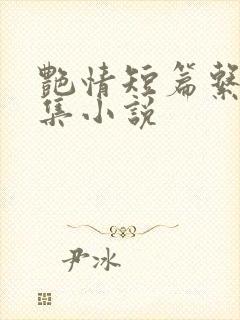 艷情短篇繫
集小說
尹冰